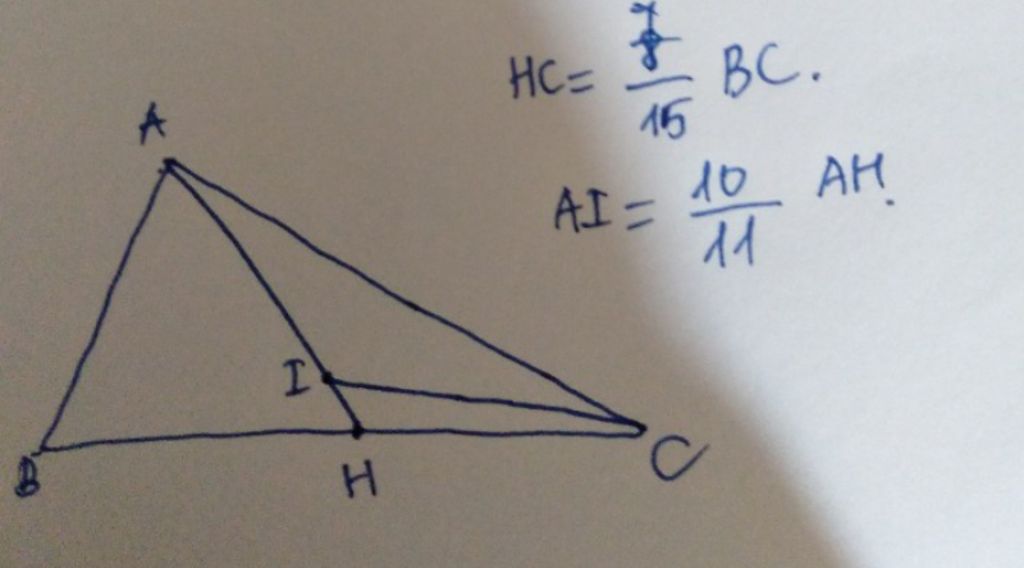 HC = 7/15 BC.
A
AI = 10/11 AH.
I
B
H
C